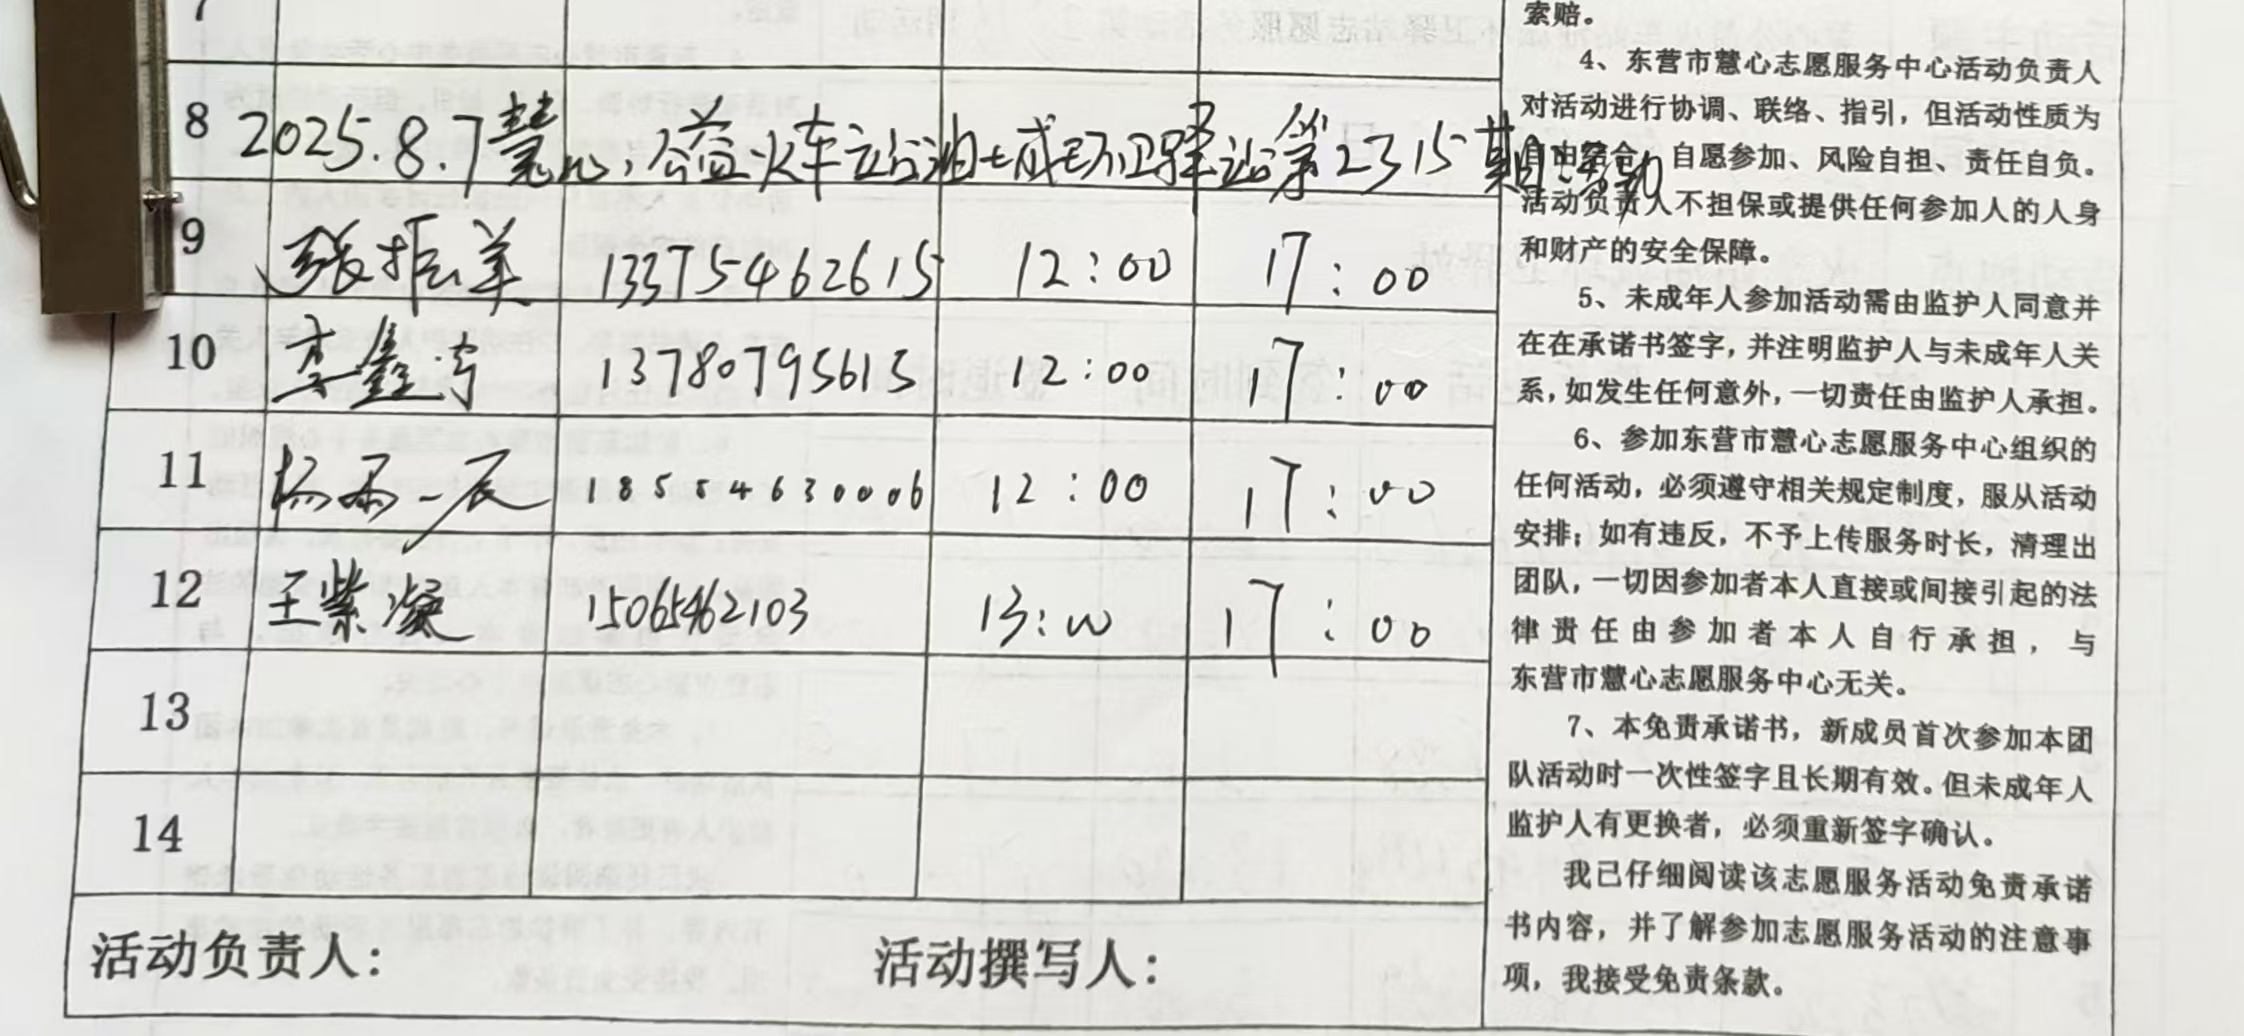 7
8 2025.8.7慧心公益火车站油城环卫驿站第2315期活动
9 张振美 13375462615 12:00 17:00
10 李鑫宇 13780795615 12:00 17:00
11 杨 一辰 18554630006 12:00 17:00
12 王紫凝 15065462103 13:00 17:00
13
14
活动负责人: 活动撰写人:
索赔。
4、东营市慧心志愿服务中心活动负责人
对活动进行协调、联络、指引，但活动性质为
自由结合、自愿参加、风险自担、责任自负。
活动负责人不担保或提供任何参加人的人身
和财产的安全保障。
5、未成年人参加活动需由监护人同意并
在在承诺书签字，并注明监护人与未成年人关
系，如发生任何意外，一切责任由监护人承担。
6、参加东营市慧心志愿服务中心组织的
任何活动，必须遵守相关规定制度，服从活动
安排；如有违反，不予上传服务时长，清理出
团队，一切因参加者本人直接或间接引起的法
律责任由参加者本人自行承担，与
东营市慧心志愿服务中心无关。
7、本免责承诺书，新成员首次参加本团
队活动时一次性签字且长期有效。但未成年人
监护人有更换者，必须重新签字确认。
我已仔细阅读该志愿服务活动免责承诺
书内容，并了解参加志愿服务活动的注意事
项，我接受免责条款。